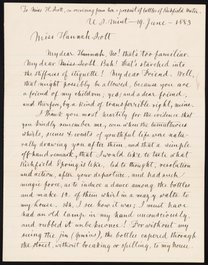 To Miss H. Scott, on receiving from her a present of bottles of Richfield Water,
U. S. Mint — 19 June — 1883
Miss Hannah Scott
My dear Hannah, No! that's too familiar.
My dear Miss Scott. Bah! that's starched into
the stiffness of etiquette! My dear Friend. Well,
that might possibly be allowed, because you are
a friend of my children; yes; and a dear friend;
and therefore, by a kind of transferable right, mine.
I thank you most heartily for the evidence that
you kindly remember me, even when the
whirls, scenes & wants of youthful life were
drawing you after them, and that a simple
off-hand remark, that I would like to taste what
Richfield Spring is like, led to thought, resolution
and action, after your departure, and had such
magic force, as to induce a dance among the bottles
and make 10 of them whirl in a waltz to
my house. Ah, I see how it was; I must have
had an old lamp in my hand unconsciously,
and rubbed it unbeknownst! For without my
seeing the jin (genius), the bottles capered through
the door, without breaking or spilling, to my